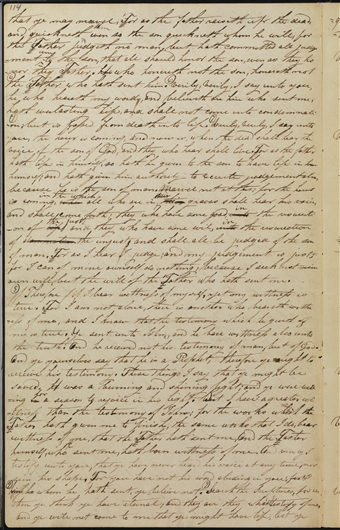 114
that ye may marvel, For as the father raiseth up the dead
and quickeneth even so the son quickeneth whom he will, for
the Father judgeth no man, but hath committed all judge
ment to the son, that all should honor the son, even as they ho
nor the Father, He who honoreth not the son, honoreth not
the Father who hath sent him, Verily, Verily, I say unto you,
he who heareth my word, and believeth on him who sent me,
hath everlasting life, and shall not come into condemnati
on, but is passed from death into life, Verily, Verily, I say unto
you, the hour is coming, and now is, when the dead shall hear the
voice of the son of God, and they who hear shall live, for as the father
hath life in himself, so hath he given to the son to have life in
himself, and hath given him authority to execute judgement also,
because he is the son of man, marvel not at this, for the hour
is coming, in the which all who are in their graves shall hear his voice,
and shall come forth, they who have done good in the resurrecti
on of the just, and they who have done evil, in the resurrection
of the unjust, and shall all be judged of the son
of man, for as I hear I judge, and my judgement is just,
for I can of mine own self do nothing, because I seek not mine
own will, but the will of the Father who hath sent me,
Therefore if I bear witness of myself, yet my witness is
true. For I am not alone, there is another who beareth wit
ness of me, and I know that the testimony which he giveth of
me is true, Ye sent unto John, and he bare witness also unto
the truth, And he received not his testimony of man, but of God,
and ye yourselves say that he is a Prophet, therefore ye ought to
receive his testimony, These things I say that ye might be
saved, He was a burning and shining light, and ye were will
ing for a season to rejoice in his light, But I have a greater wit
ness than the testimony of John, for the works which the
Father hath given me to finish, the same works that I do, bear
witness of me, that the Father hath sent me, and the Father
himself, who sent me, hath born witness of me,
testify unto you, that ye have never heard his voice at any time, nor
seen his shape, For ye have not his word abiding in you, for
whom he hath sent, ye believe not, Search the scriptures, for in
them ye think ye have eternal life, and they are they which testify of me,
and ye will not come to me that ye might have life, lest ye